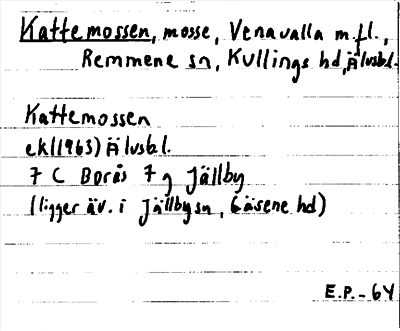 Kattemossen, mosse, Venavalla m.fl.,
Remmene sn, Kullings hd, Älvsbl.
Kattemossen
ek(1963) Älvsbl.
7 C Borås 7 g Jällby
(ligger äv. i Jällby sn, Gäsene hd)
E.P. - 64